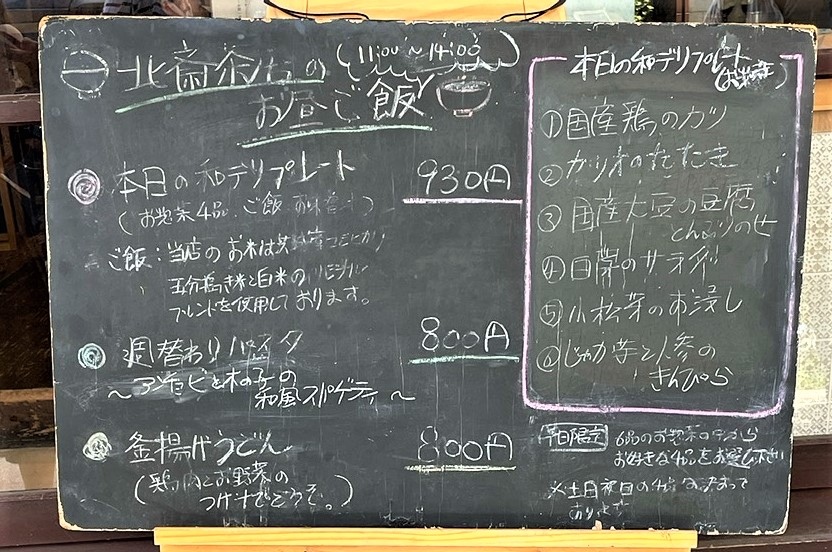 北斎茶房の
(11:00~14:00)
お昼ご飯
本日の和デリプレート 930円
(お惣菜4品、ご飯、お味噌汁)
ご飯:当店のお米は コシヒカリ
五分搗き米と白米のオリジナル
ブレンドを使用しております。
週替わりパスタ 800円
~アンチョビと木の子の
和風スパゲティ~
釜揚げうどん 800円
(鶏肉とお野菜の
つけ汁でどうぞ。)
本日の和デリプレート
(お惣菜)
①国産鶏のカツ
②カツオのたたき
③国産大豆の豆腐
とんぶりのせ
④ のサラダ
⑤小松菜のお浸し
⑥じゃが芋と人参の
きんぴら
平日限定 6品のお惣菜の中から
お好きな4品をお選び下さい
※土日祝日の4品は決まって
おります